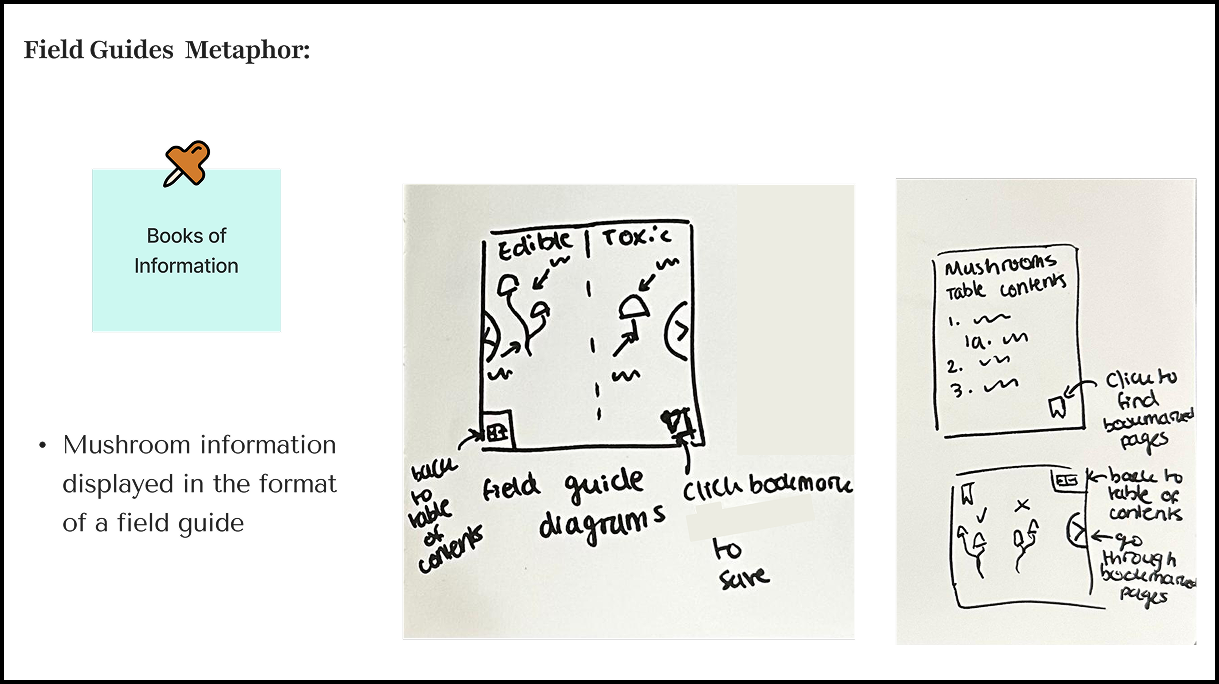 Field Guides Metaphor:
Books of
Information
• Mushroom information
displayed in the format
of a field guide
Edible | Toxic
back
to
table
of
contents
field guide
diagrams
click bookmark
to
save
Mushrooms
Table contents
1.
1a.
2.
3.
Click to
find
bookmarked
pages
back to
table of
contents
go
through
bookmarked
pages